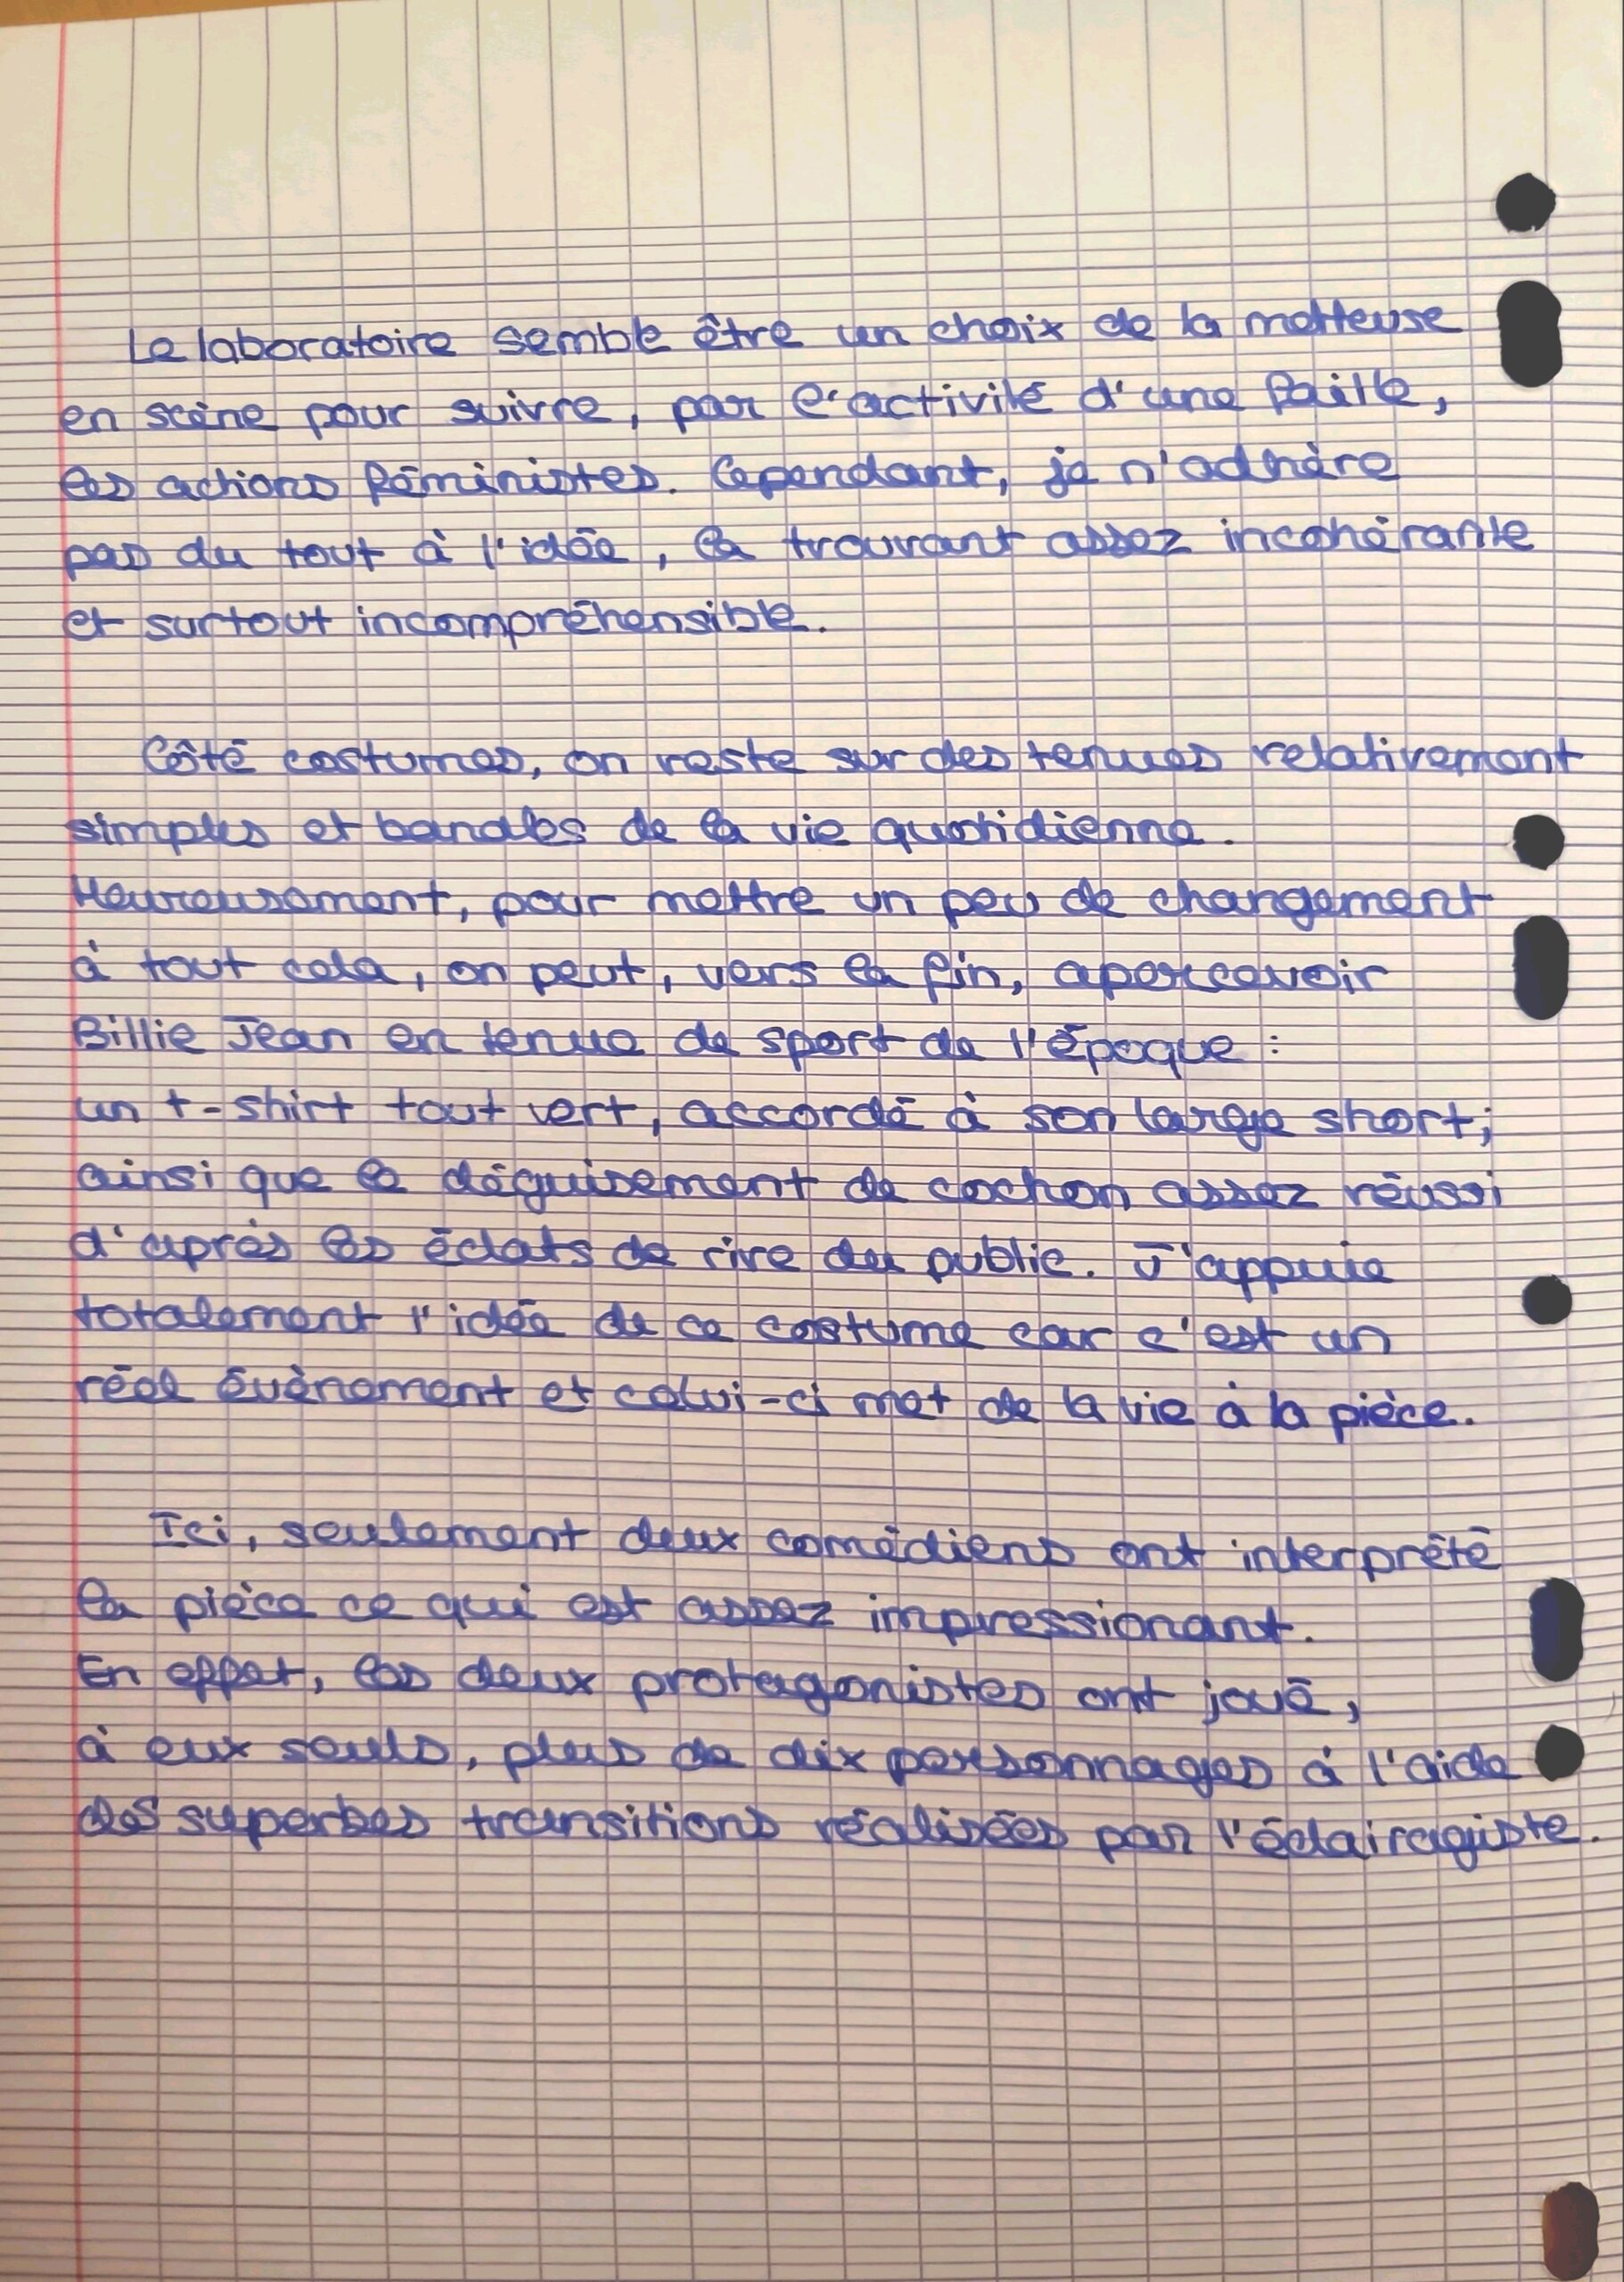 Le laboratoire semble être un choix de la metteuse
en scène pour suivre, par l'activité d'une faille,
les actions féministes. Cependant, je n'adhère
pas du tout à l'idée, la trouvant assez incohérante
et surtout incompréhensible.
Côté costumes, on reste sur des tenues relativement
simples et banales de la vie quotidienne.
Heureusement, pour mettre un peu de changement
à tout cela, on peut, vers la fin, apercevoir
Billie Jean en tenue de sport de l'époque :
un t-shirt tout vert, accordé à son large short;
ainsi que le déguisement de cochon assez réussi
d'après les éclats de rire du public. J'appuie
totalement l'idée de ce costume car c'est un
réel évènement et celui-ci met de la vie à la pièce.
Ici, seulement deux comédiens ont interprété
la pièce ce qui est assez impressionant.
En effet, les deux protagonistes ont joué,
à eux seuls, plus de dix personnages à l'aide
des superbes transitions réalisées par l'éclairagiste.